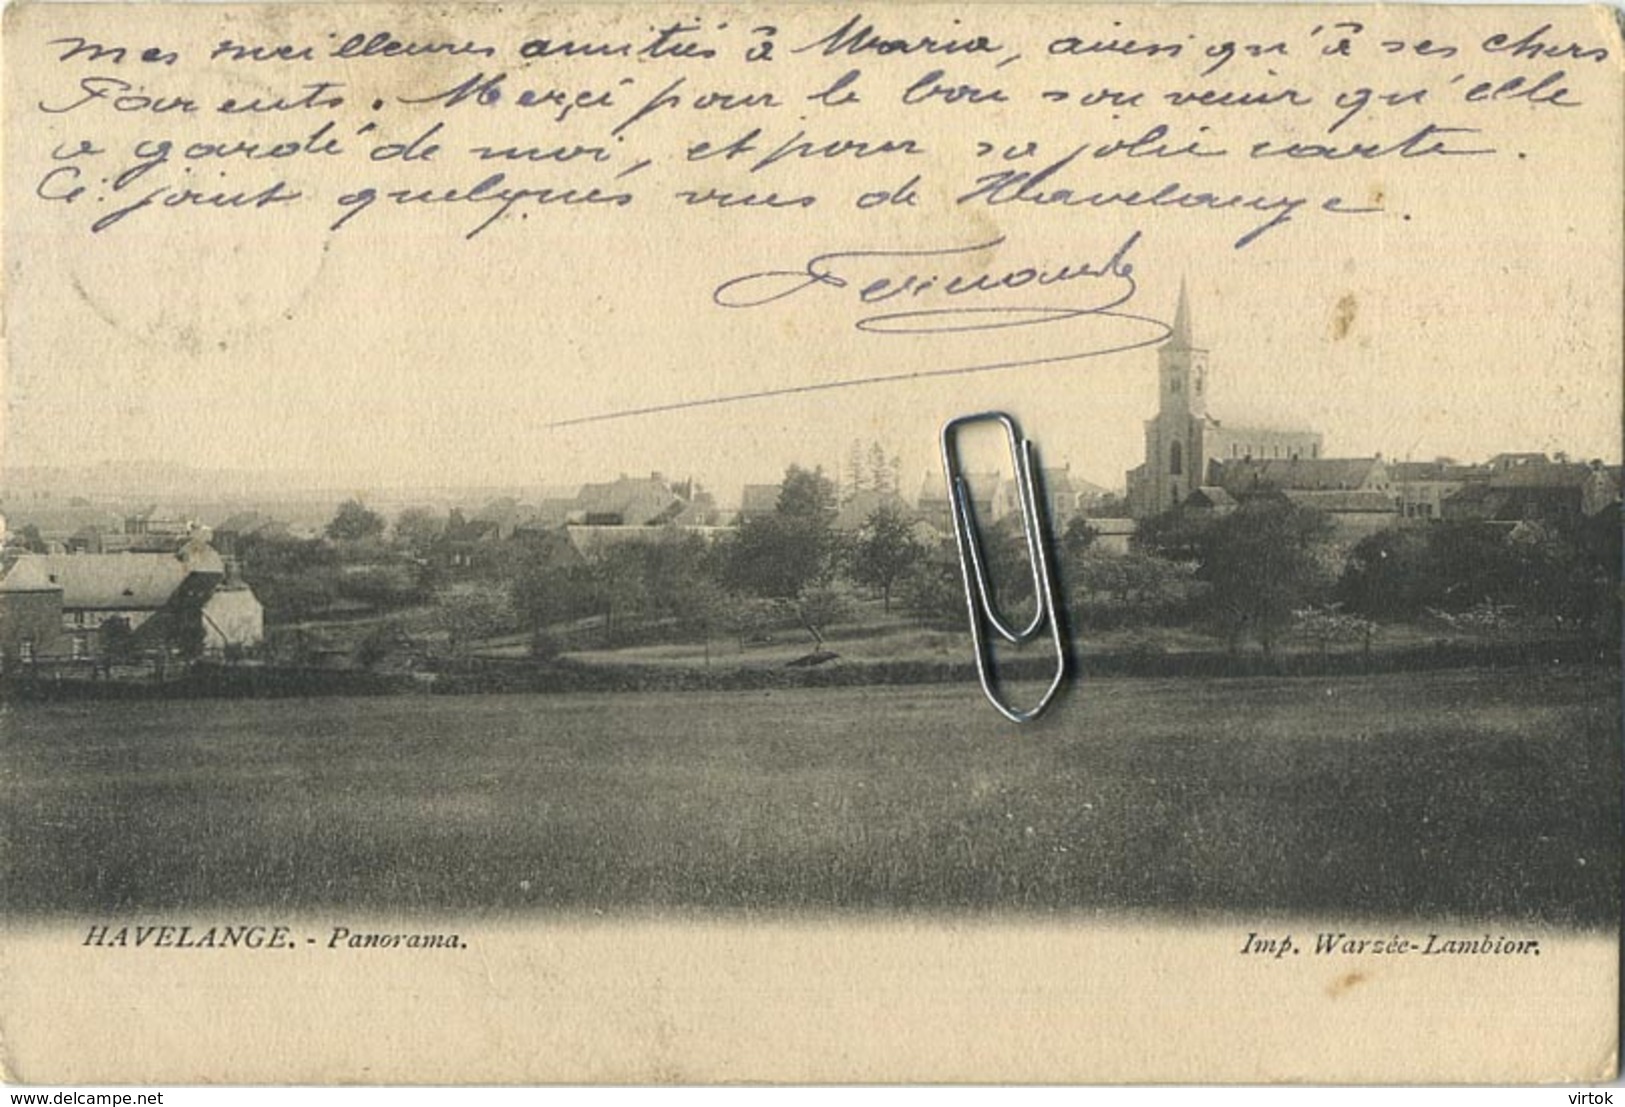 mes meilleures amitiés à Maria, ainsi qu'à ses chers
Parents. Merci pour le bon souvenir qu'elle
a gardé de moi, et pour sa jolie carte.
Ci-joint quelques vues de Havelange.
Fernande
HAVELANGE. - Panorama.
Imp. Warzée-Lambion.
www.delcampe.net
virtok